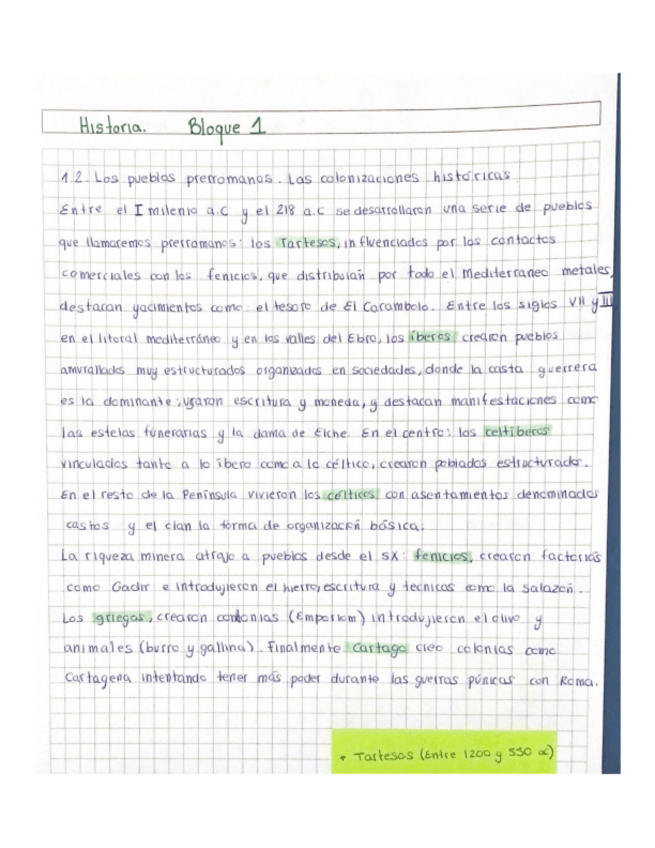 Historia. Bloque 1
1.2. Los pueblos prerromanos. Las colonizaciones históricas
Entre el I milenio a.C y el 218 a.C se desarrollaron una serie de pueblos
que llamaremos prerromanos: los Tartesos, influenciados por los contactos
comerciales con los fenicios, que distribuían por todo el Mediterraneo metales,
destacan yacimientos como el tesoro de El Carambolo. Entre los siglos VII y III
en el litoral mediterráneo y en los valles del Ebro, los íberos crearon pueblos
amurallados muy estructurados organizados en sociedades, donde la casta guerrera
es la dominante; usaron escritura y moneda, y destacan manifestaciones como
las estelas funerarias y la dama de Elche. En el centro: los celtíberos
vinculados tanto a lo íbero como a lo céltico, crearon poblados estructurados.
En el resto de la Península vivieron los célticos con asentamientos denominados
castos y el clan la forma de organización básica.
La riqueza minera atrajo a pueblos desde el SX: fenicios, crearon factorías
como Gadir e introdujeron el hierro, escritura y tecnicas como la salazón.
Los griegos, crearon colonias (Emporiom) introdujeron el olivo y
animales (burro y gallina). Finalmente Cartago creo colonias como
Cartagena intentando tener más poder durante las guerras púnicas con Roma.
* Tartesos (Entre 1200 y 550 ac)